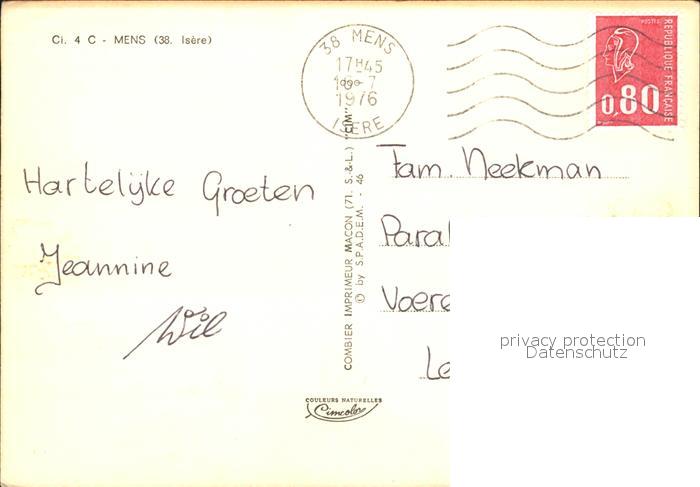 Ci. 4 C - MENS (38. Isère)
38 MENS
17H45
1976
ISÈRE
POSTES
RÉPUBLIQUE FRANÇAISE
0,80
Hartelijke Groeten
Jeannine
Wil
COMBIER IMPRIMEUR MACON (71. S.-&-L.) "CIM"
© by S.P.A.D.E.M. - 46
COULEURS NATURELLES
Cimcolor
Fam. Neekman
privacy protection
Datenschutz